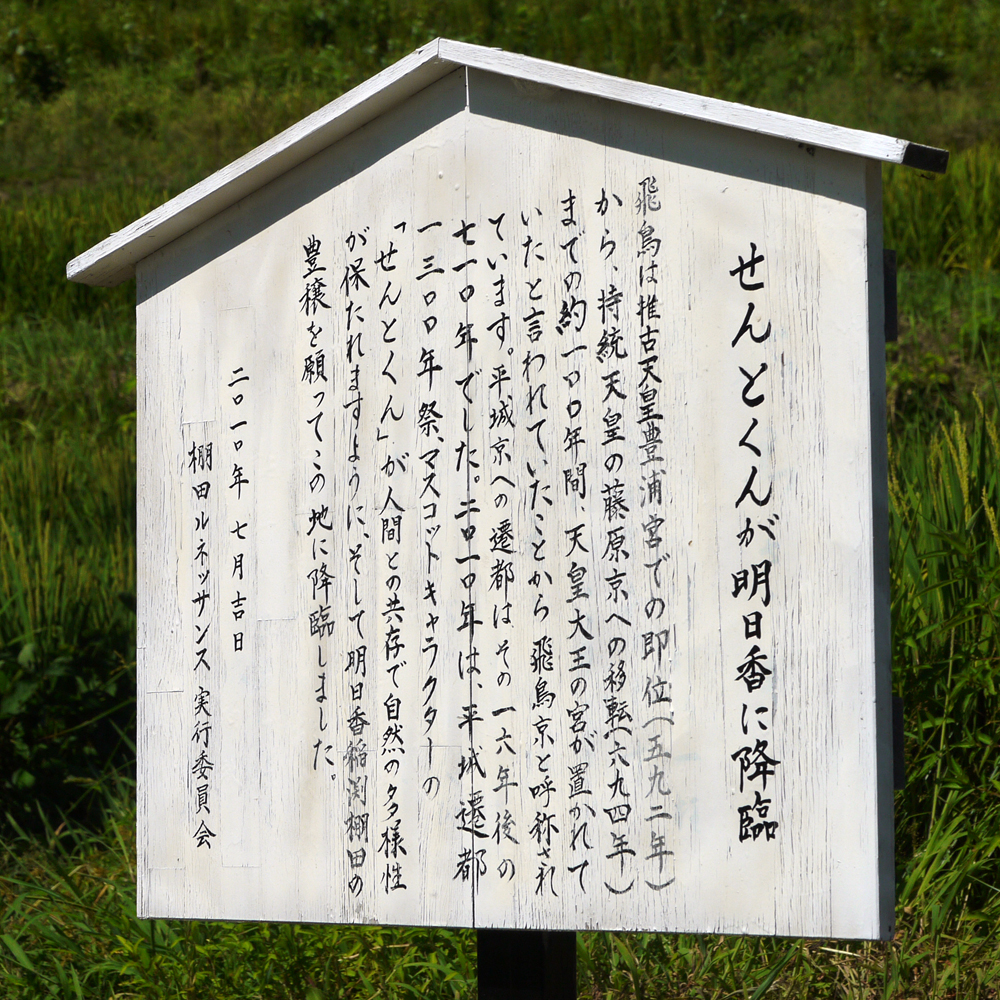 せんとくんが明日香に降臨
飛鳥は推古天皇豊浦宮での即位（五九二年）
から、持統天皇の藤原京への移転（六九四年）
までの約一〇〇年間、天皇大王の宮が置かれて
いたと言われていたことから飛鳥京と呼称され
ています。平城京への遷都はその一六年後の
七一〇年でした。二〇一〇年は、平城遷都
一三〇〇年祭、マスコットキャラクターの
「せんとくん」が人間との共存で自然の多様性
が保たれますように、そして明日香稲渕棚田の
豊穣を願ってこの地に降臨しました。
二〇一〇年 七月吉日
棚田ルネッサンス 実行委員会